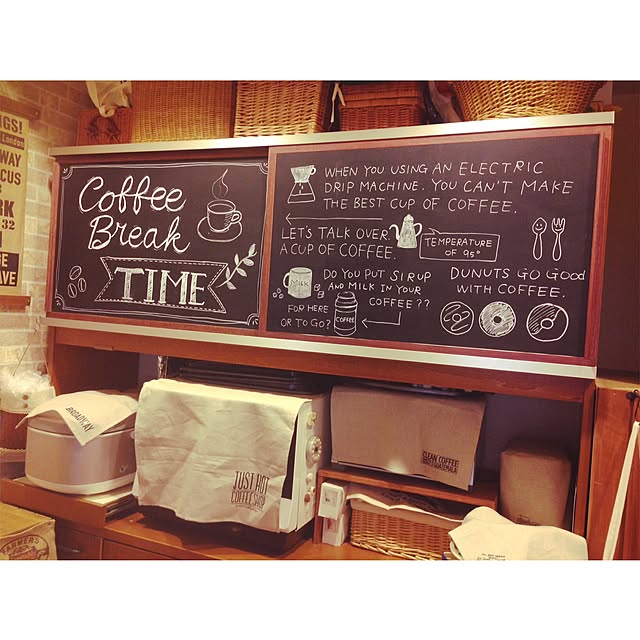 NGS!
London
WAY
CUS
RK
32
AVE
Coffee
Break
TIME
WHEN YOU USING AN ELECTRIC
DRIP MACHINE. YOU CAN'T MAKE
THE BEST CUP OF COFFEE.
LET'S TALK OVER
A CUP OF COFFEE.
TEMPERATURE
OF 95°
MILK
DO YOU PUT SIRUP
AND MILK IN YOUR
COFFEE??
FOR HERE
OR TO GO?
COFFEE
DUNUTS GO GOOD
WITH COFFEE.
BROADWAY
JUST HOT
COFFEE SHOP
CLEAN COFFEE
GUATEMALA